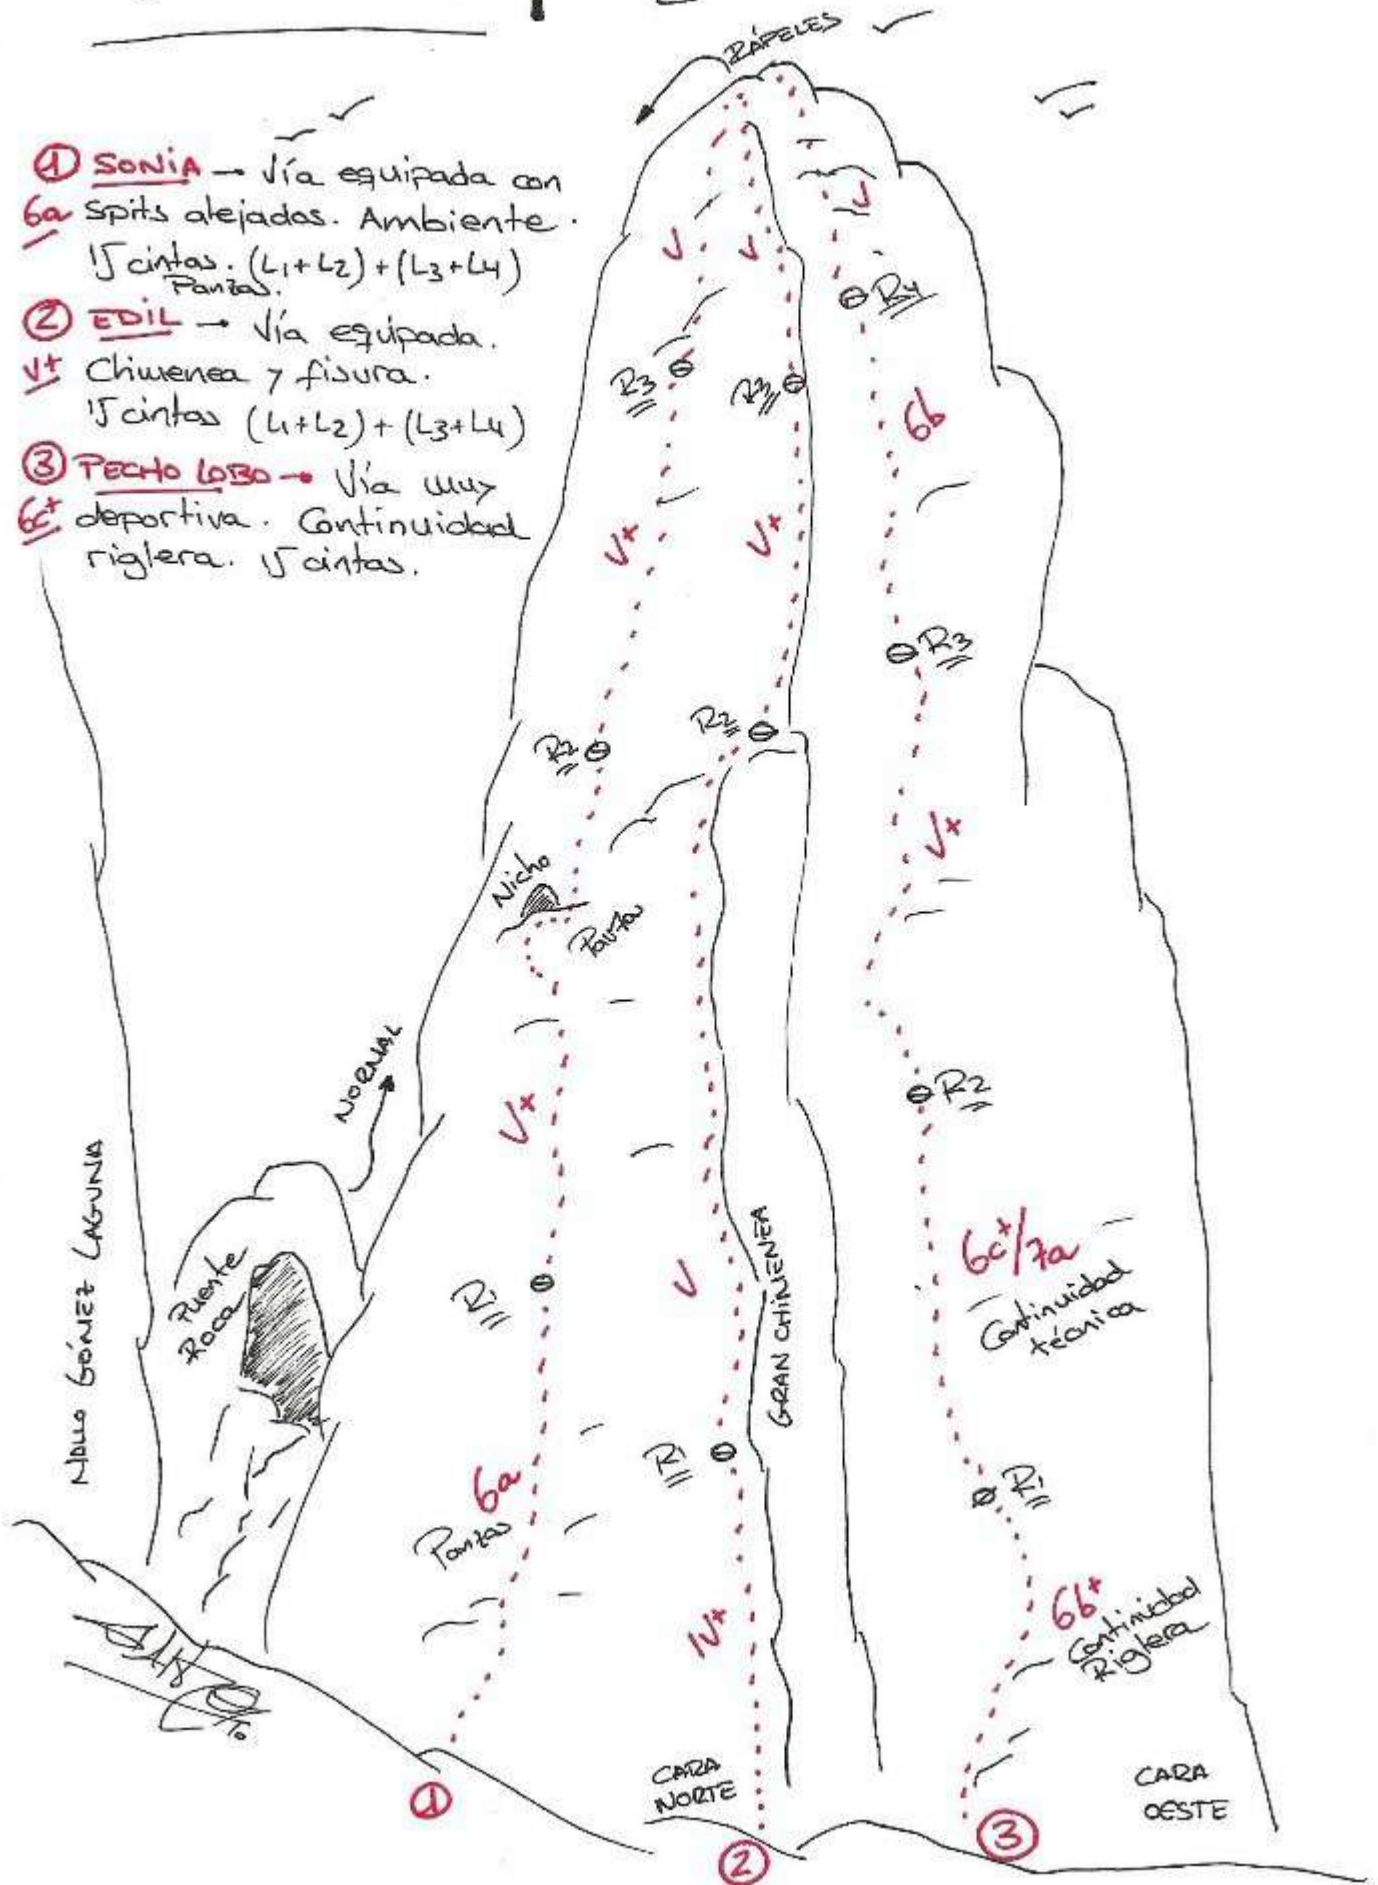 RÁPELES
① SONIA → Vía equipada con
6a spits alejados. Ambiente.
15 cintas. (L1+L2)+(L3+L4)
Panzas.
② EDIL → Vía equipada.
V+ Chimenea y fisura.
15 cintas (L1+L2)+(L3+L4)
③ PECHO LOBO → Vía muy
6c+ deportiva. Continuidad
riglera. 15 cintas.
V
V
V
R4
R3
R3
6b
V+
V+
R3
R2
R2
V+
Nicho
Panza
NORMAL
R2
V+
MALLO GÓMEZ LAGUNA
Puente
Roca
R1
V
GRAN CHIMENEA
6c+/7a
Continuidad
técnica
R1
6a
Panzas
R1
IV+
6b+
Continuidad
Riglera
CARA
NORTE
CARA
OESTE
①
②
③